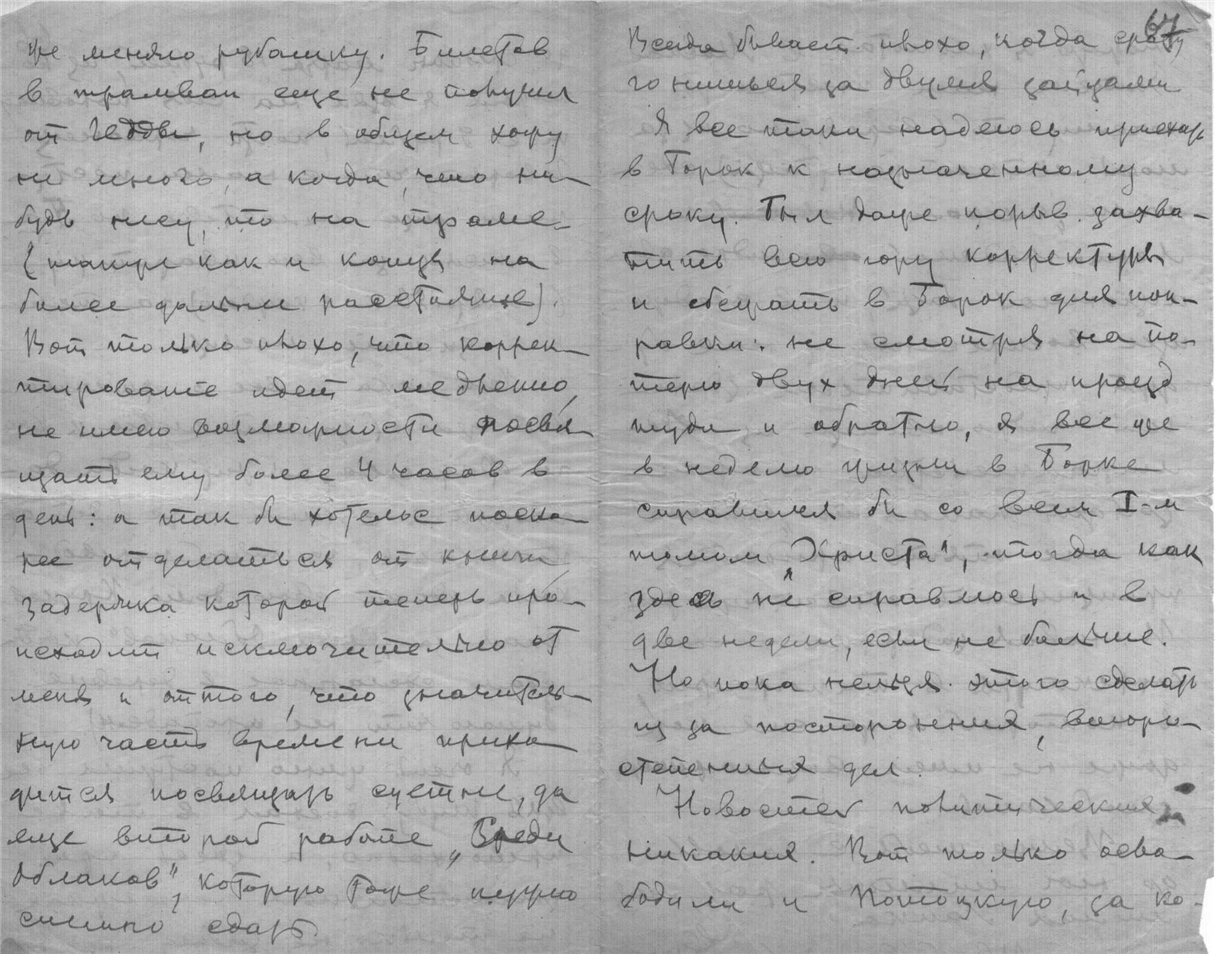 же меняю рубашку. Билетов
в трамваи еще не получил
от, но в общем хожу
не много, а когда, что ни-
будь несу, то на траме-
(также как и концы на
более дальни расстояние).
Вот только плохо, что коррек-
тирование идет медленно,
не имею возможности посвя-
щать ему более 4 часов в
день: а так бы хотелось поско-
рее отделаться от книги,
задержка которой теперь про-
исходит исключительно от
меня и оттого, что значитель-
ную часть времени прихо-
дится посвящать суетне, да
еще второй работе „Среди
облаков", которую тоже нужно
спешно сдать
67
Всегда бывает плохо, когда сразу
гонишься за двумя зайцами
Я все таки надеюсь приехать
в Борок к назначенному
сроку. Был даже порыв захва-
тить всю гору корректуры
и сбежать в Борок для поп-
равки: не смотря на по-
терю двух дней на проезд
туда и обратно, я все же
в неделю жизни в Борке
справился бы со всем I-м
томом „Христа", тогда как
здесь не справлюсь и в
две недели, если не больше.
Но пока нельзя этого сделать
из за посторонних, второ-
степенных дел.
Новостей политических
никаких. Вот только осво-
бодили и Потоцкую, за ко-